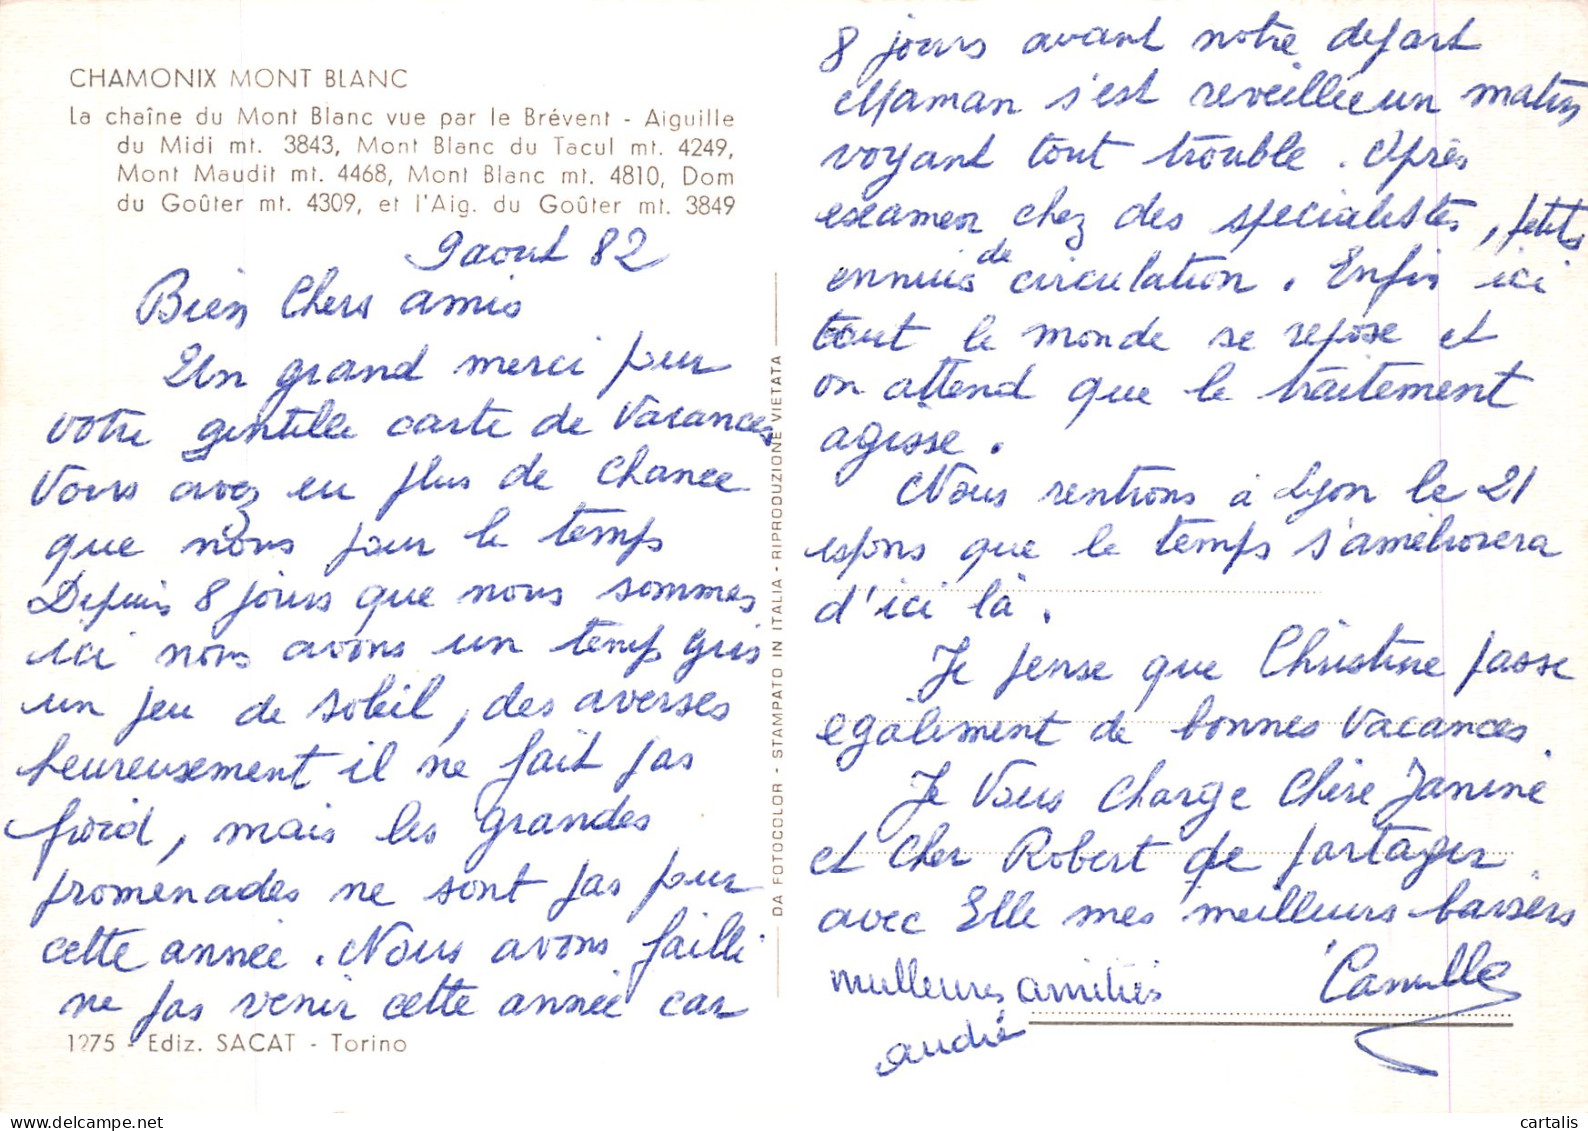 CHAMONIX MONT BLANC
La chaîne du Mont Blanc vue par le Brévent - Aiguille
du Midi mt. 3843, Mont Blanc du Tacul mt. 4249,
Mont Maudit mt. 4468, Mont Blanc mt. 4810, Dom
du Goûter mt. 4309, et l'Aig. du Goûter mt. 3849
9 aout 82
Bien Chers amis
Un grand merci pour
votre gentille carte de Vacances
Vous avez eu plus de chance
que nous pour le temps
Depuis 8 jours que nous sommes
ici nous avons un temps gris
un peu de soleil, des averses
heureusement il ne fait pas
froid, mais les grandes
promenades ne sont pas pour
cette année. Nous avons failli
ne pas venir cette année car
1275 - Ediz. SACAT - Torino
DA FOTOCOLOR - STAMPATO IN ITALIA - RIPRODUZIONE VIETATA
8 jours avant notre depart
Maman s'est reveillée un matin
voyant tout trouble. Après
examen chez des specialistes, petits
ennuis de circulation. Enfin ici
tout le monde se repose et
on attend que le traitement
agisse.
Nous rentrons à Lyon le 21
espons que le temps s'améliorera
d'ici là.
Je pense que Christine passe
également de bonnes Vacances.
Je Vous charge Chère Janine
et Cher Robert de partager
avec Elle mes meilleurs baisers
meilleures amitiés
Camille
andré
cartalis